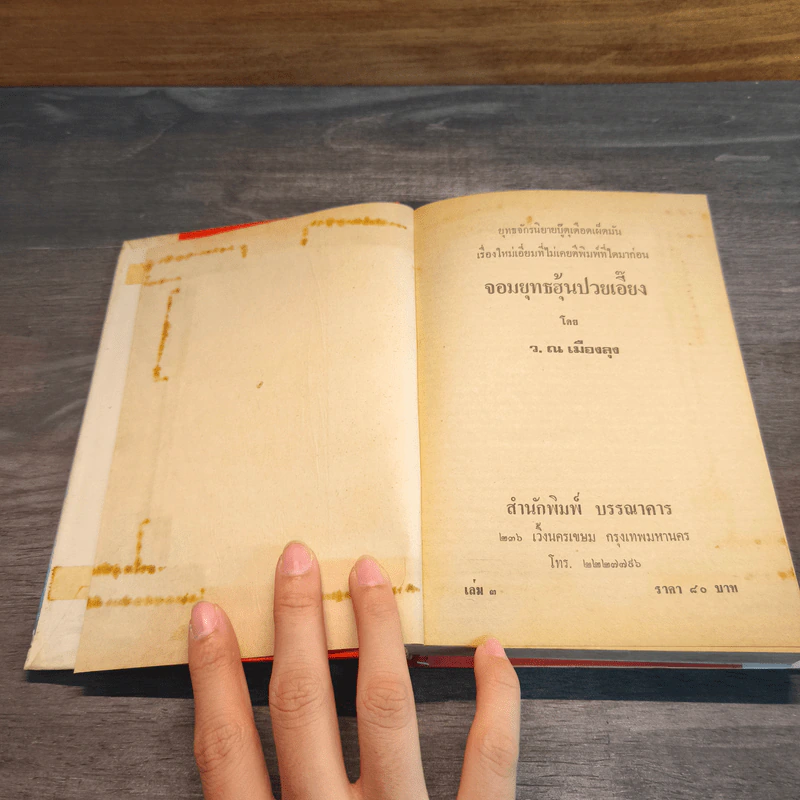 ยุทธจักรนิยายบู๊ดุเดือดเผ็ดมัน
เรื่องใหม่เอี่ยมที่ไม่เคยตีพิมพ์ที่ใดมาก่อน
จอมยุทธฮุ้นปวยเอี๊ยง
โดย
ว. ณ เมืองลุง
สำนักพิมพ์ บรรณาคาร
๒๓๖ เวิ้งนครเขษม กรุงเทพมหานคร
โทร. ๒๒๒๗๗๕๖
เล่ม ๓ ราคา ๘๐ บาท